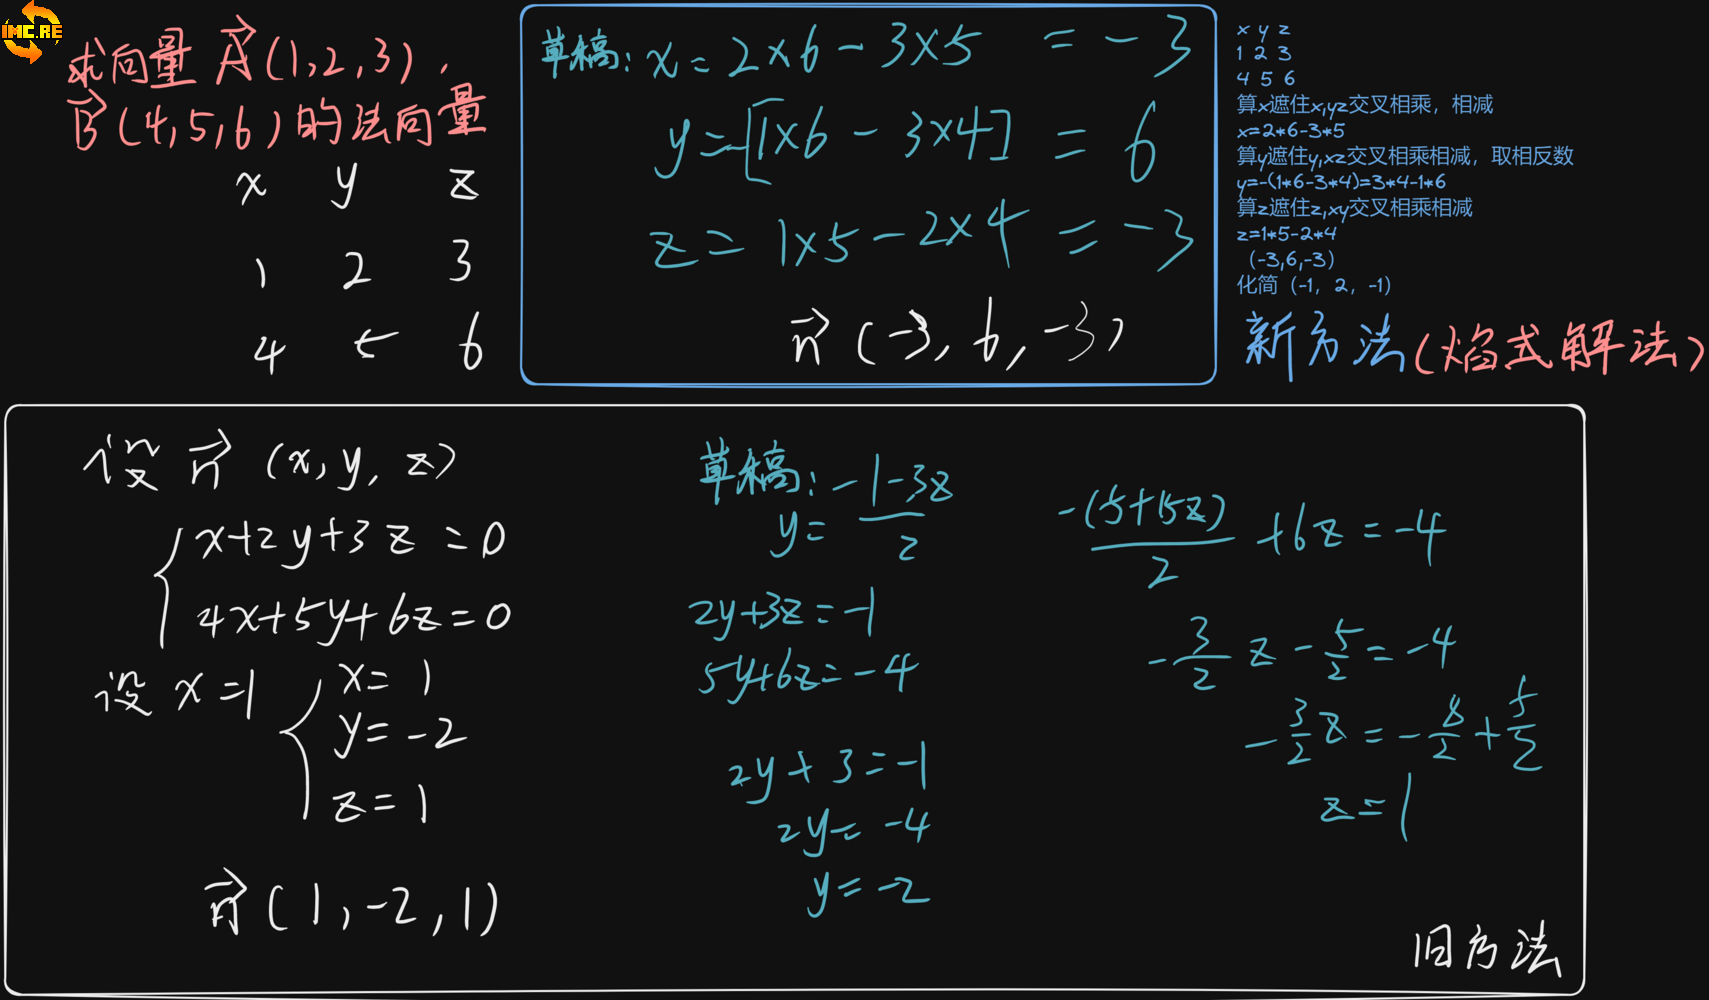 IMC.RE
求向量 A(1,2,3),
B(4,5,6)的法向量
x y z
1 2 3
4 5 6
草稿: x=2×6-3×5 =-3
y=-[1×6-3×4] = 6
z=1×5-2×4 =-3
n(-3,6,-3)
x y z
1 2 3
4 5 6
算x遮住x,yz交叉相乘，相减
x=2*6-3*5
算y遮住y,xz交叉相乘相减，取相反数
y=-(1*6-3*4)=3*4-1*6
算z遮住z,xy交叉相乘相减
z=1*5-2*4
（-3,6,-3）
化简（-1，2，-1）
新方法(焰式解法)
设 n (x,y,z)
x+2y+3z=0
4x+5y+6z=0
设 x=1
x=1
y=-2
z=1
n(1,-2,1)
草稿:
y=(-1-3z)/2
2y+3z=-1
5y+6z=-4
2y+3=-1
2y=-4
y=-2
-(5+15z)/2+6z=-4
-3/2z-5/2=-4
-3/2z=-8/2+5/2
z=1
旧方法